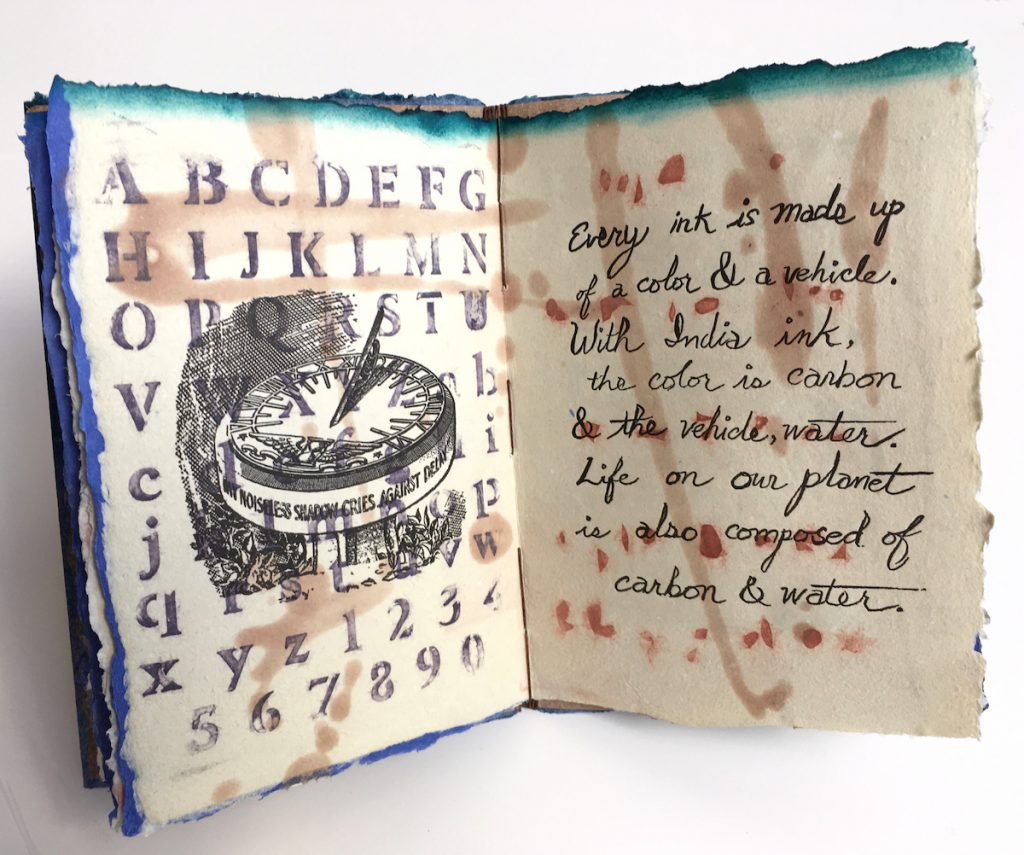 A B C D E F G
H I J K L M N
O P Q R S T U
V W X Y Z a b
c d e f g h i
j l m n o p
q r s t u v w
x y z 1 2 3 4
5 6 7 8 9 0
NOISELESS SHADOW CRIES AGAINST DELAY
Every ink is made up
of a color & a vehicle.
With India ink,
the color is carbon
& the vehicle, water.
Life on our planet
is also composed of
carbon & water.